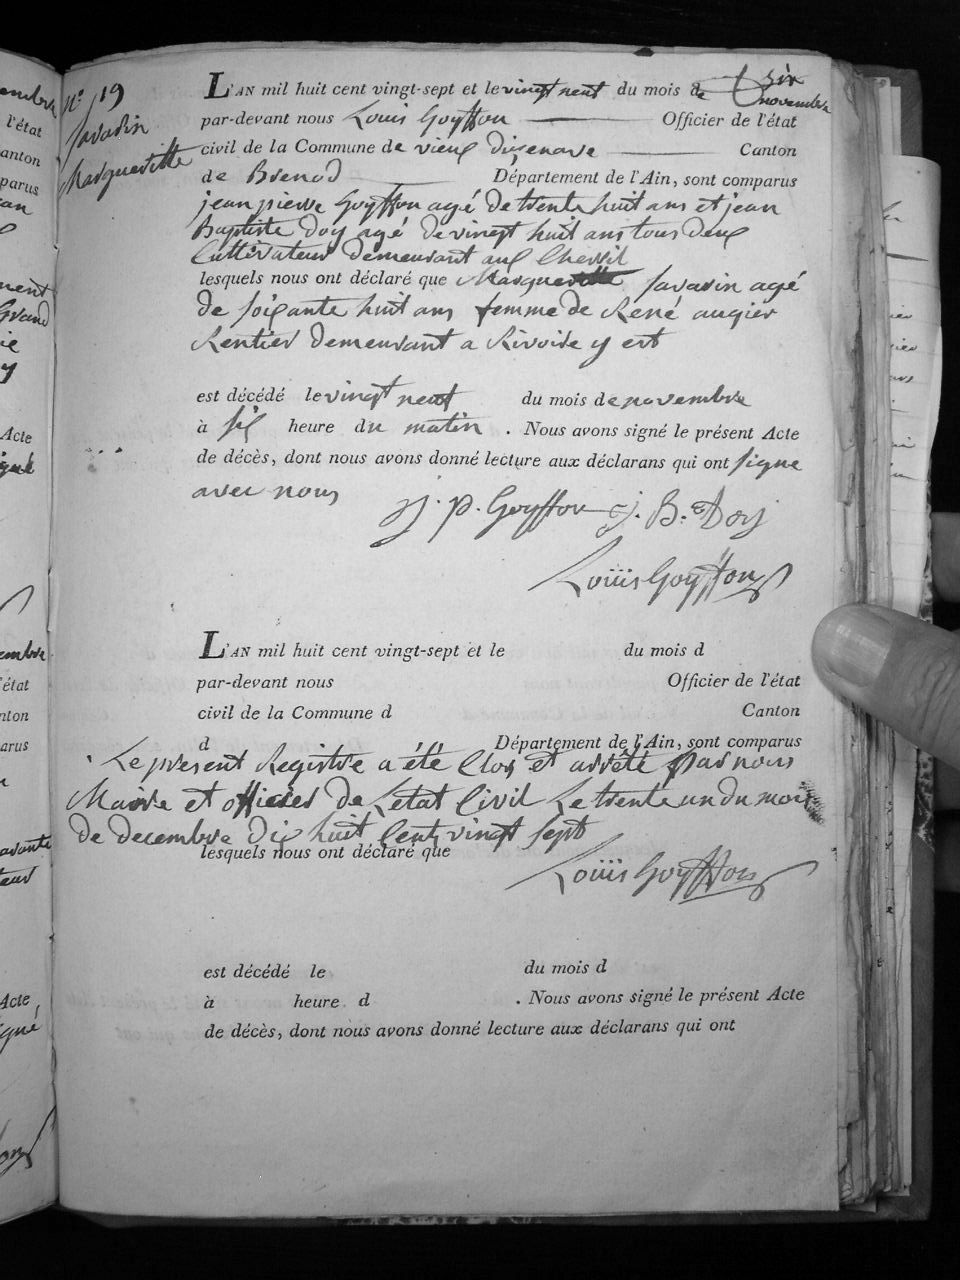 N.° 19
Savarin
Marguerittte
L'AN mil huit cent vingt-sept et le vingt neuf du mois de novembre
par-devant nous Louis Goyffon Officier de l'état
civil de la Commune de vieux d'izenave Canton
de Brenod Département de l'Ain, sont comparus
jean pierre Goyffon agé de trente huit ans et jean
Baptiste Doy agé de vingt huit ans tous deux
Cultivateur demeurant aux Chevril
lesquels nous ont déclaré que Margueritte Savarin agé
de soixante huit ans femme de René augier
Rentier demeurant a Rivoire y est
est décédé le vingt neuf du mois de novembre
à six heure du matin . Nous avons signé le présent Acte
de décès, dont nous avons donné lecture aux déclarans qui ont signe
avec nous j. p. Goyffon j. B.te Doy
Louiis Goyffon
L'AN mil huit cent vingt-sept et le du mois d
par-devant nous Officier de l'état
civil de la Commune d Canton
d Département de l'Ain, sont comparus
Le present Registre a été Clos et arrêté par nous
Maire et officier de L'etat Civil Le trente un du mois
de decembre dix huit Cent vingt sept
lesquels nous ont déclaré que
Louiis Goyffon
est décédé le du mois d
à heure d . Nous avons signé le présent Acte
de décès, dont nous avons donné lecture aux déclarans qui ont